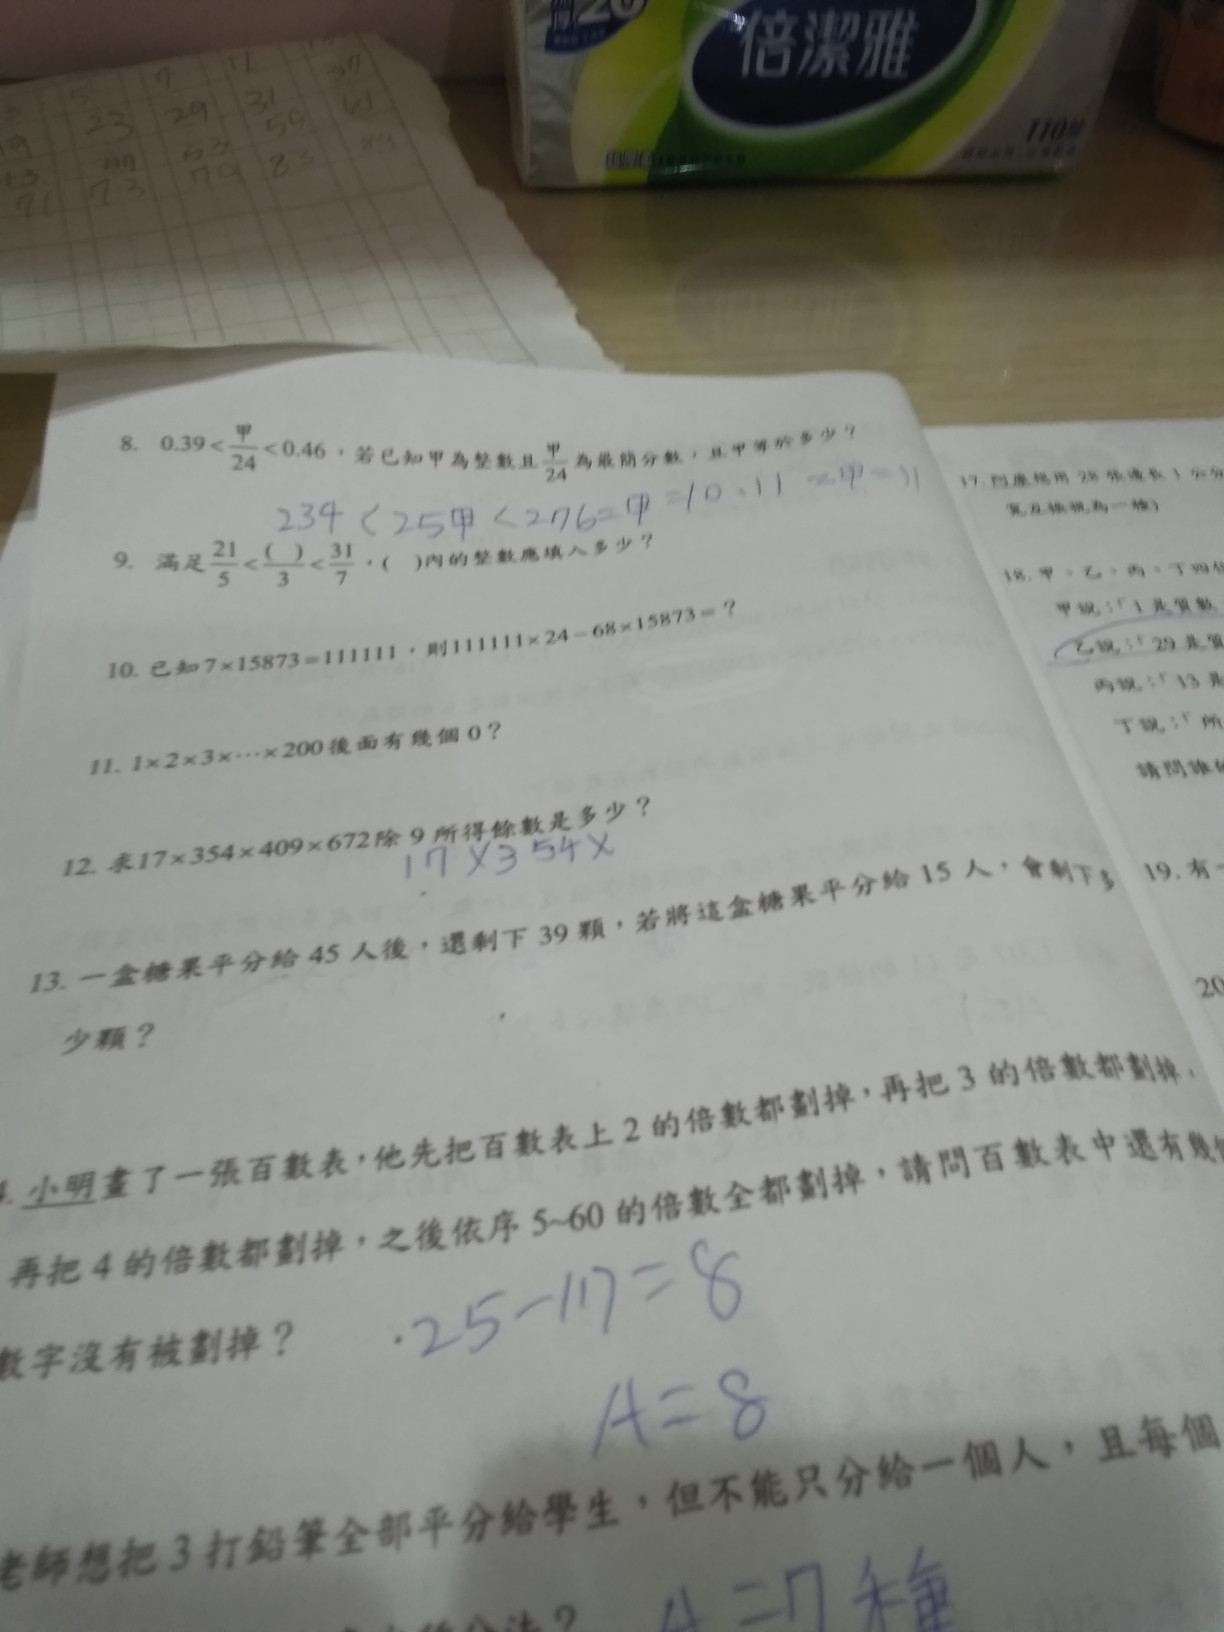 倍潔雅
110
5 7 11
23 29 31 37
53 59 61
91 73 79 83
8. 0.39<甲/24<0.46，若已知甲為整數且甲/24為最簡分數，且甲等於多少？
234<25甲<276=甲=10、11 =甲=11
9. 滿足21/5<( )/3<31/7，( )內的整數應填入多少？
10. 已知7×15873=111111，則111111×24−68×15873=？
11. 1×2×3×…×200後面有幾個0？
12. 求17×354×409×672除9所得餘數是多少？
17×354×
13. 一盒糖果平分給45人後，還剩下39顆，若將這盒糖果平分給15人，會剩下多
少顆？
小明畫了一張百數表，他先把百數表上2的倍數都劃掉，再把3的倍數都劃掉，
再把4的倍數都劃掉，之後依序5~60的倍數全都劃掉，請問百數表中還有幾個
數字沒有被劃掉？
25-17=8
A=8
老師想把3打鉛筆全部平分給學生，但不能只分給一個人，且每個
分法？
A=7種
17. 28 張邊長1公分
寬互換視為一種)
18. 甲、乙、丙、丁四
甲說：「1是質數
乙說：「29是質
丙說：「13是
丁說：「所
請問誰
19. 有一
20